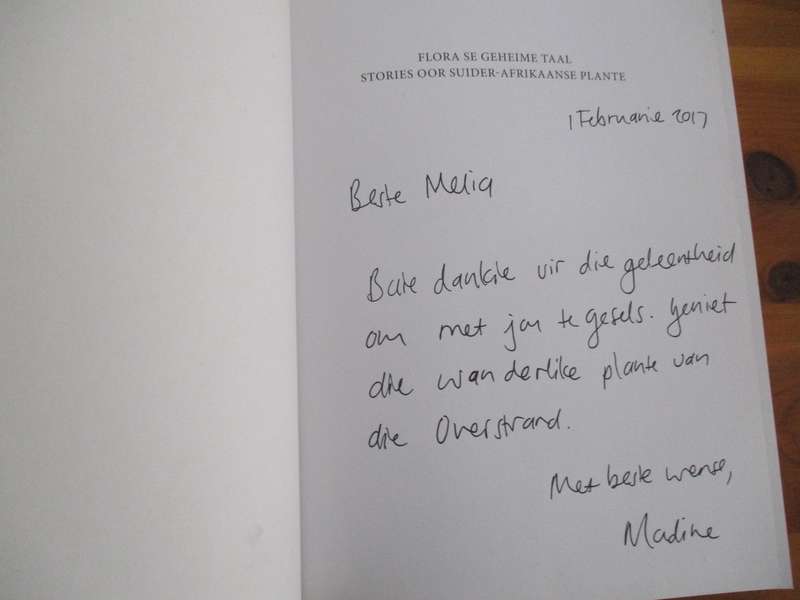 FLORA SE GEHEIME TAAL
STORIES OOR SUIDER-AFRIKAANSE PLANTE
1 Februarie 2017
Beste Melia
Baie dankie vir die geleentheid
om met jou te gesels. Geniet
die wonderlike plante van
die Overstrand.
Met beste wense,
Madine